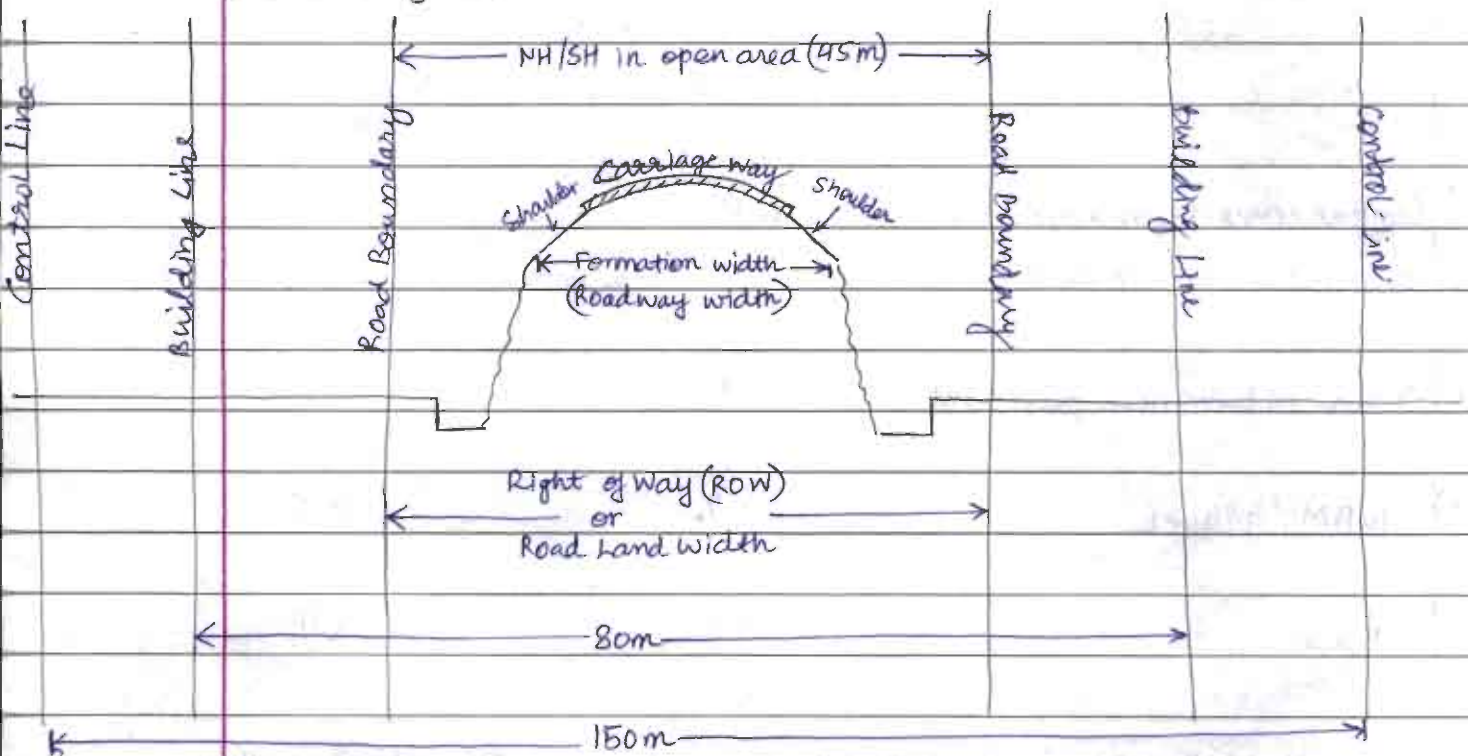 NH/SH in open area (45m)
Control Line
Building Line
Road Boundary
Carriage way
Shoulder
Shoulder
Formation width
(Roadway width)
Road Boundary
Building Line
Control Line
Right of Way (ROW)
or
Road Land Width
80m
150m